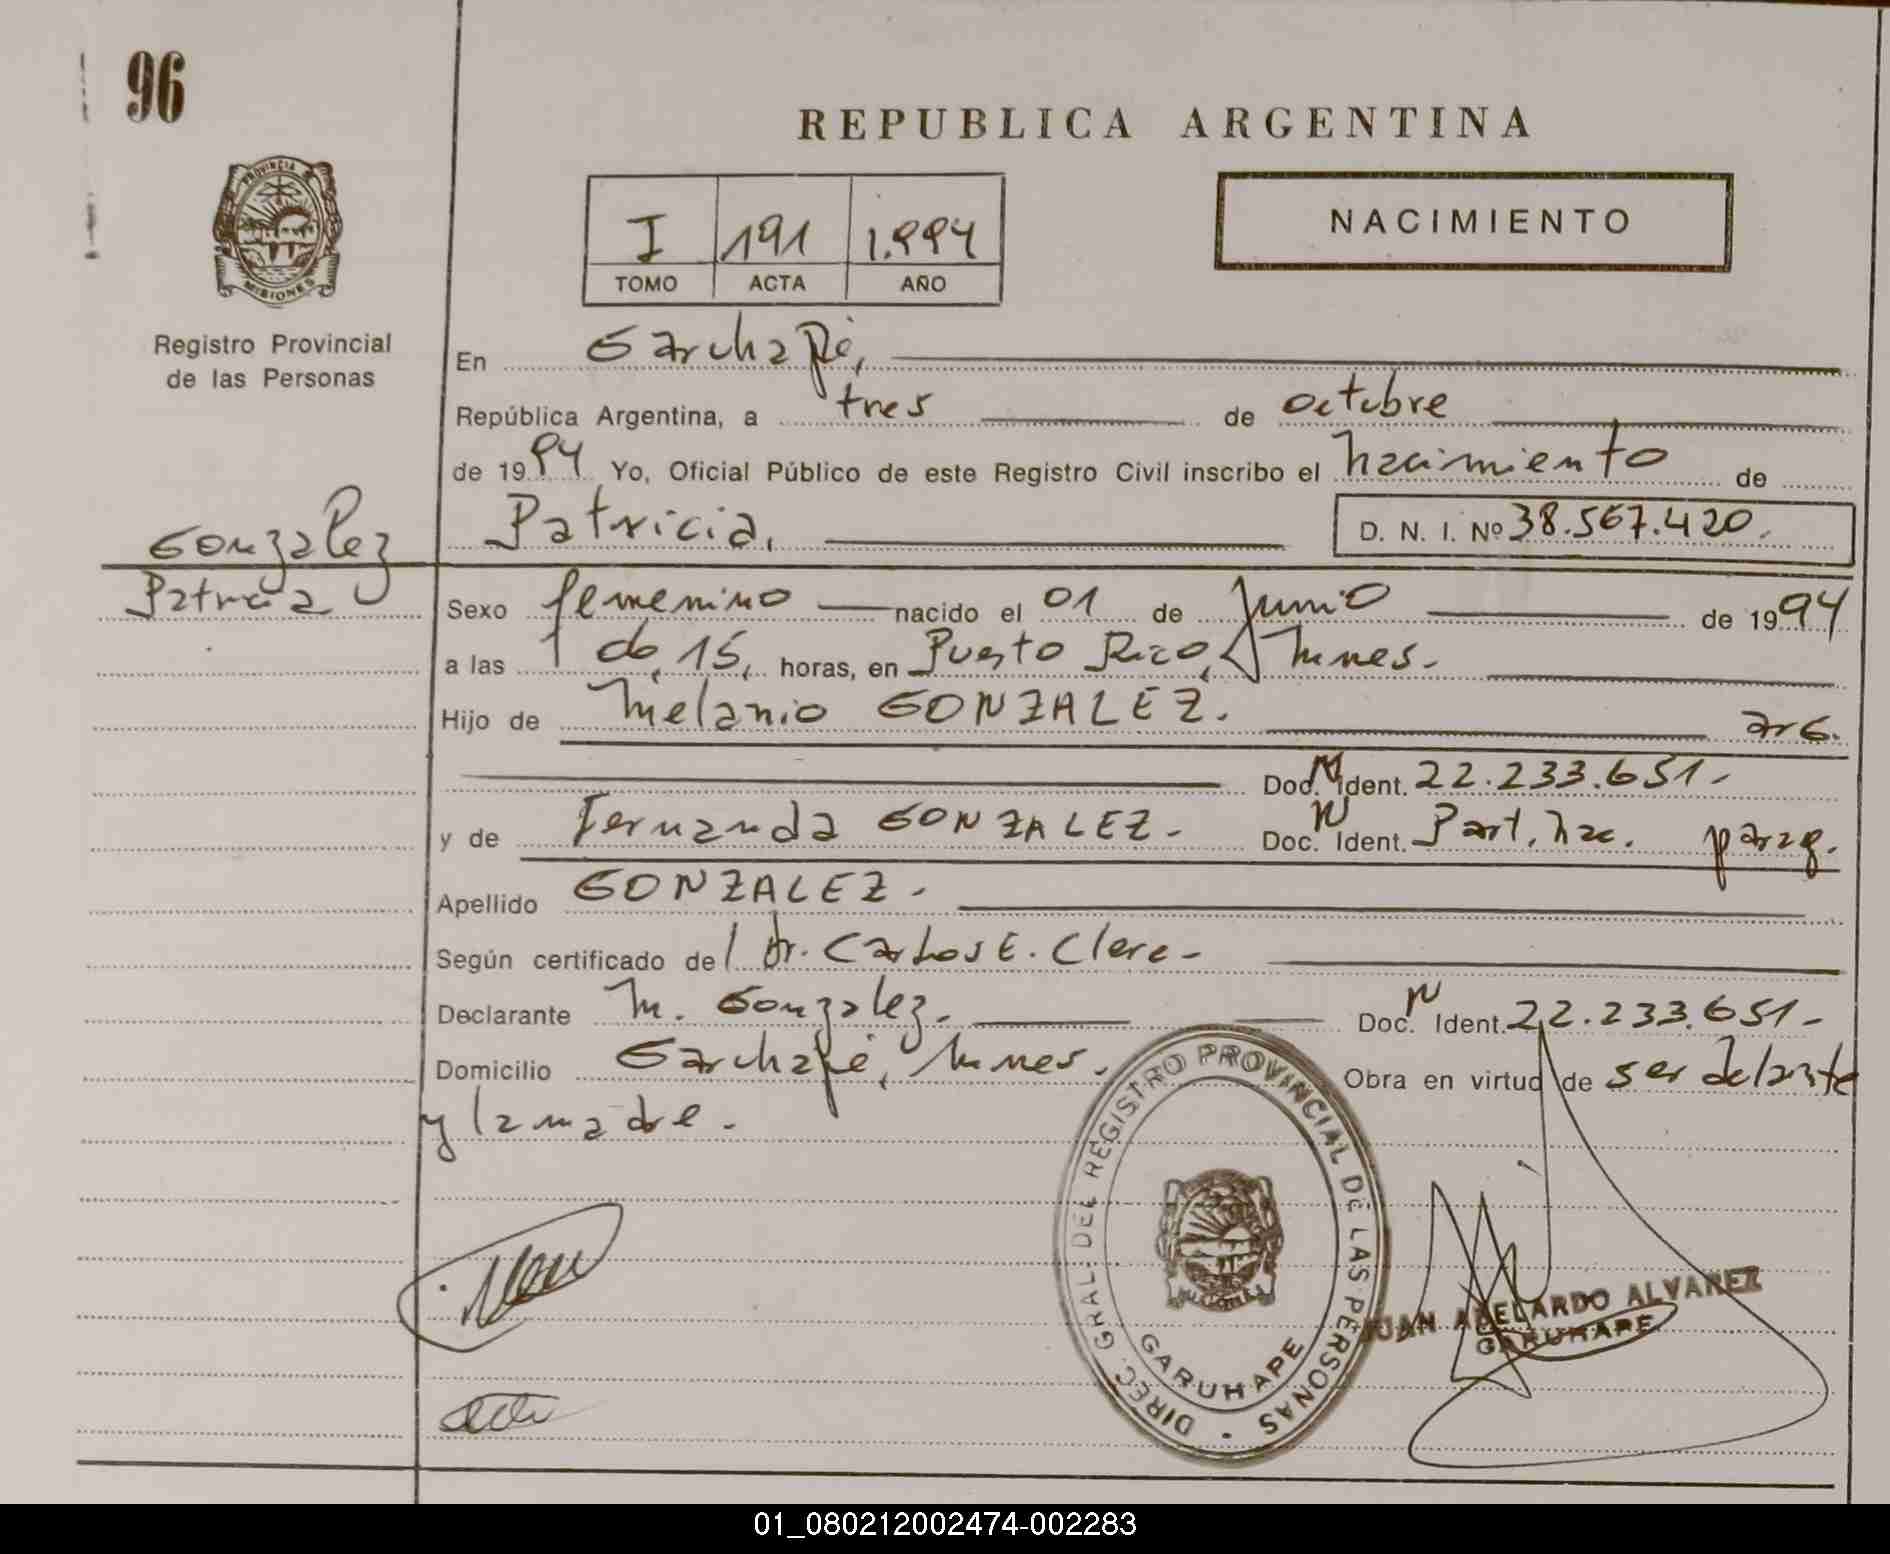 96
REPUBLICA ARGENTINA
PROVINCIA
MISIONES
I 191 1.994
TOMO ACTA AÑO
NACIMIENTO
Registro Provincial
de las Personas
En Garuhapé,
República Argentina, a tres de octubre
de 1994 Yo, Oficial Público de este Registro Civil inscribo el nacimiento de
Patricia, D. N. I. Nº 38.567.420.
Gonzalez
Patricia
Sexo femenino nacido el 01 de Junio de 1994
a las 15, horas, en Puerto Rico, Mnes.
Hijo de Melanio GONZALEZ. arg.
Doc. N Ident. 22.233.651.-
y de Fernanda GONZALEZ.- Doc. N Ident. Part. nac. parag.
Apellido GONZALEZ.-
Según certificado del Dr. Carlos E. Clere.-
Declarante M. Gonzalez.- Doc. N Ident. 22.233.651.-
Domicilio Garuhapé, Mnes. Obra en virtud de ser
y la madre.-
DIREC. GRAL. DEL REGISTRO PROVINCIAL DE LAS PERSONAS
GARUHAPE
JUAN ABELARDO ALVAREZ
GARUHAPE
01_080212002474-002283